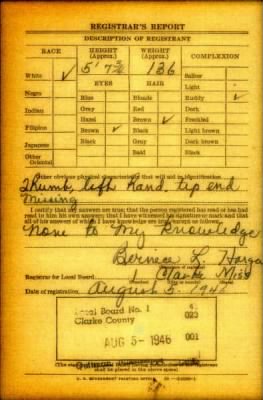 REGISTRAR'S REPORT
DESCRIPTION OF REGISTRANT
RACE HEIGHT (Approx.) WEIGHT (Approx.) COMPLEXION
White ✓ 5' 7 3/4 136 Sallow
Light
Negro EYES HAIR Ruddy ✓
Blue Blonde Dark
Indian Gray Red Freckled
Hazel Brown ✓ Light brown
Filipino Brown ✓ Black Dark brown
Japanese Black Gray Black
Bald
Other
Oriental
Other obvious physical characteristics that will aid in identification
Thumb, left hand, tip end
missing
I certify that my answers are true; that the person registered has read or has had
read to him his own answers; that I have witnessed his signature or mark and that
all of his answers of which I have knowledge are true, except as follows:
None to my knowledge
Bernice L.
Registrar for Local Board 1 Clarke Miss
Date of registration August 5 - 1946
Local Board No. 1 4
Clarke County 023
AUG 5 - 1946 001
U. S. GOVERNMENT PRINTING OFFICE